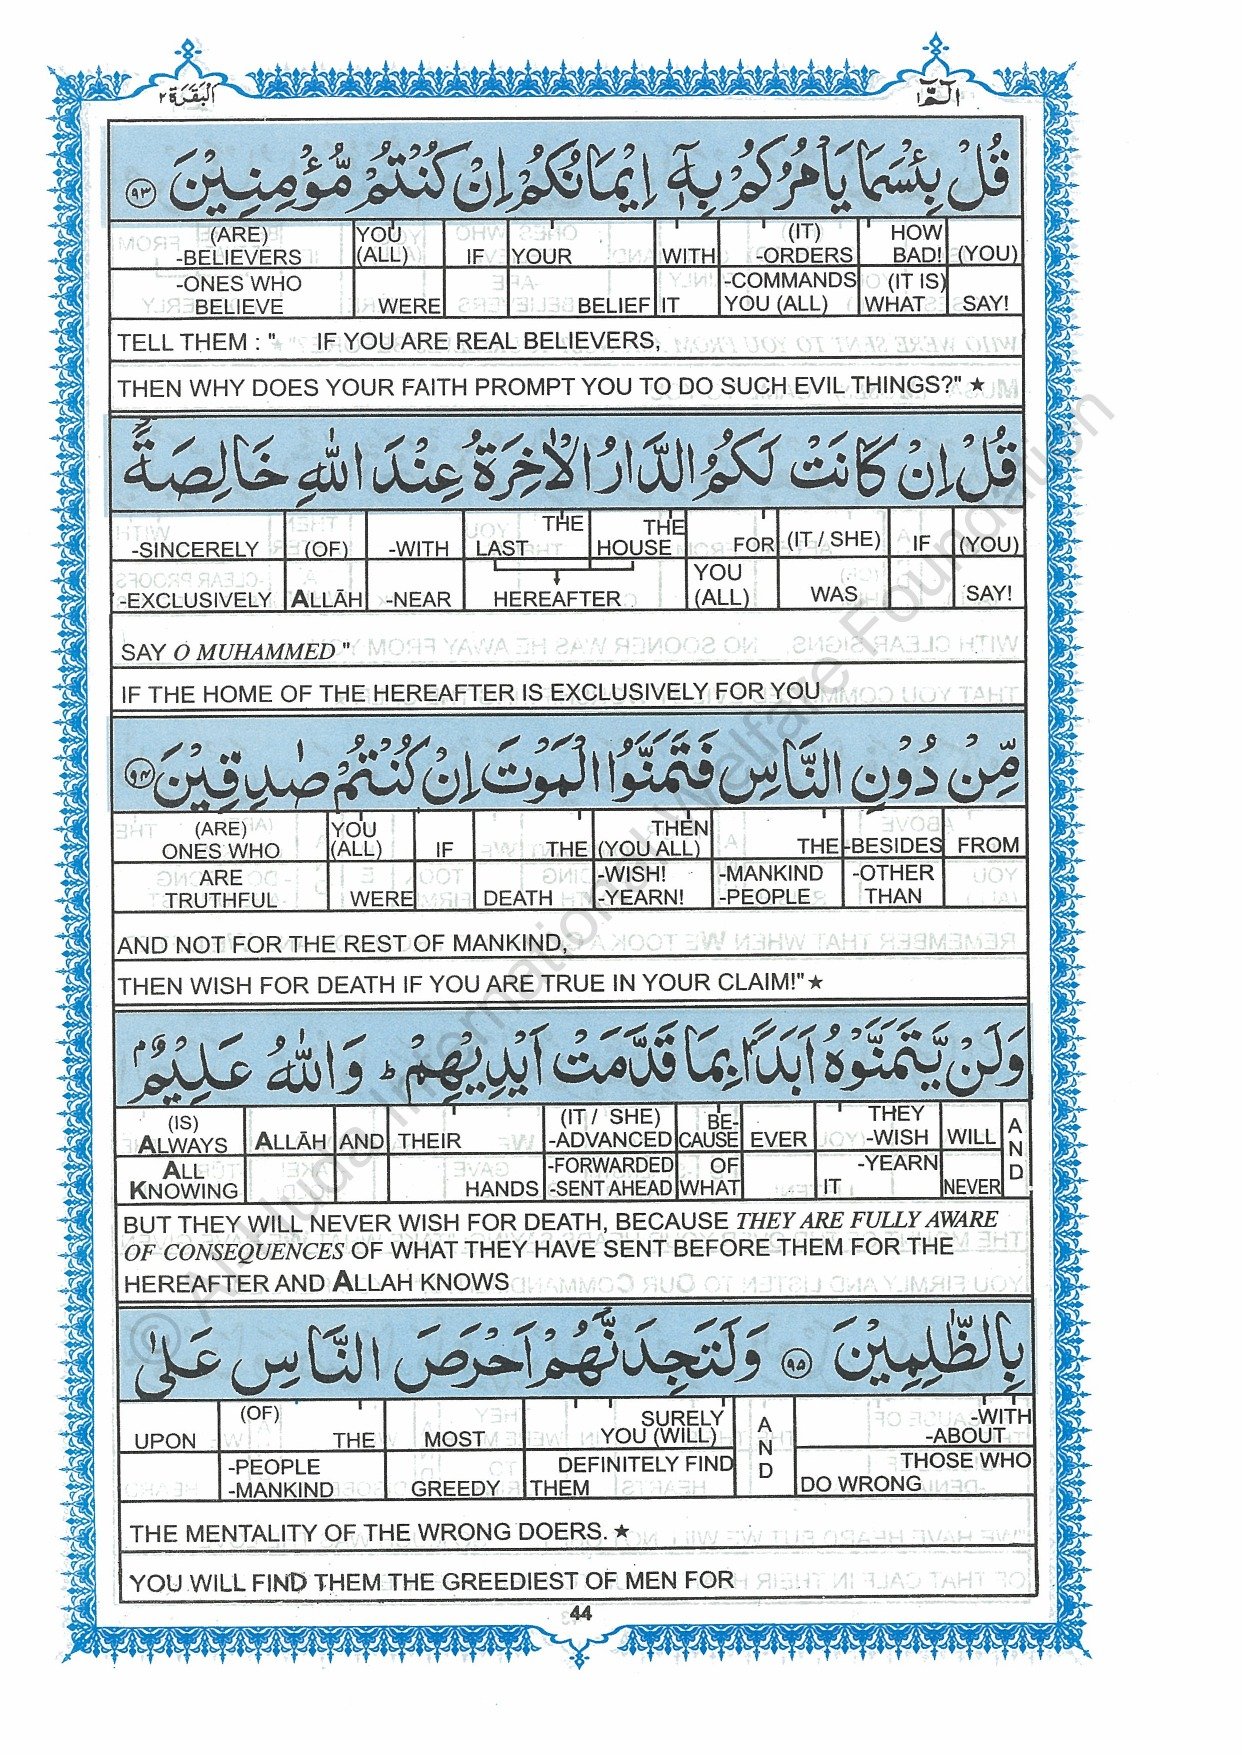 البقرة ٢
الٓمّٓ ١
قُلْ بِئْسَمَا يَاْمُرُكُمْ بِهٖٓ اِيْمَانُكُمْ اِنْ كُنْتُمْ مُّؤْمِنِيْنَ ﴿٩٣﴾
(ARE) YOU (IT) HOW
-BELIEVERS (ALL) IF YOUR WITH -ORDERS BAD! (YOU)
-ONES WHO -COMMANDS (IT IS)
BELIEVE WERE BELIEF IT YOU (ALL) WHAT SAY!
TELL THEM : " IF YOU ARE REAL BELIEVERS,
THEN WHY DOES YOUR FAITH PROMPT YOU TO DO SUCH EVIL THINGS?" ★
قُلْ اِنْ كَانَتْ لَكُمُ الدَّارُ الْاٰخِرَةُ عِنْدَ اللّٰهِ خَالِصَةً
THE THE
-SINCERELY (OF) -WITH LAST HOUSE FOR (IT / SHE) IF (YOU)
YOU
-EXCLUSIVELY ALLĀH -NEAR HEREAFTER (ALL) WAS SAY!
SAY O MUHAMMED "
IF THE HOME OF THE HEREAFTER IS EXCLUSIVELY FOR YOU
مِّنْ دُوْنِ النَّاسِ فَتَمَنَّوُا الْمَوْتَ اِنْ كُنْتُمْ صٰدِقِيْنَ ﴿٩٤﴾
(ARE) YOU THEN
ONES WHO (ALL) IF THE (YOU ALL) THE -BESIDES FROM
ARE -WISH! -MANKIND -OTHER
TRUTHFUL WERE DEATH -YEARN! -PEOPLE THAN
AND NOT FOR THE REST OF MANKIND,
THEN WISH FOR DEATH IF YOU ARE TRUE IN YOUR CLAIM!" ★
وَلَنْ يَّتَمَنَّوْهُ اَبَدًۢا بِمَا قَدَّمَتْ اَيْدِيْهِمْ ؕ وَاللّٰهُ عَلِيْمٌۢ
(IS) (IT / SHE) BE- THEY
ALWAYS ALLĀH AND THEIR -ADVANCED CAUSE EVER -WISH WILL AND
ALL -FORWARDED OF -YEARN
KNOWING HANDS -SENT AHEAD WHAT IT NEVER
BUT THEY WILL NEVER WISH FOR DEATH, BECAUSE THEY ARE FULLY AWARE
OF CONSEQUENCES OF WHAT THEY HAVE SENT BEFORE THEM FOR THE
HEREAFTER AND ALLAH KNOWS
بِالظّٰلِمِيْنَ ﴿٩٥﴾ وَلَتَجِدَنَّهُمْ اَحْرَصَ النَّاسِ عَلٰى
(OF) SURELY -WITH
UPON THE MOST YOU (WILL) AND -ABOUT
-PEOPLE DEFINITELY FIND THOSE WHO
-MANKIND GREEDY THEM DO WRONG
THE MENTALITY OF THE WRONG DOERS. ★
YOU WILL FIND THEM THE GREEDIEST OF MEN FOR
44
© Al-Huda International Welfare Foundation